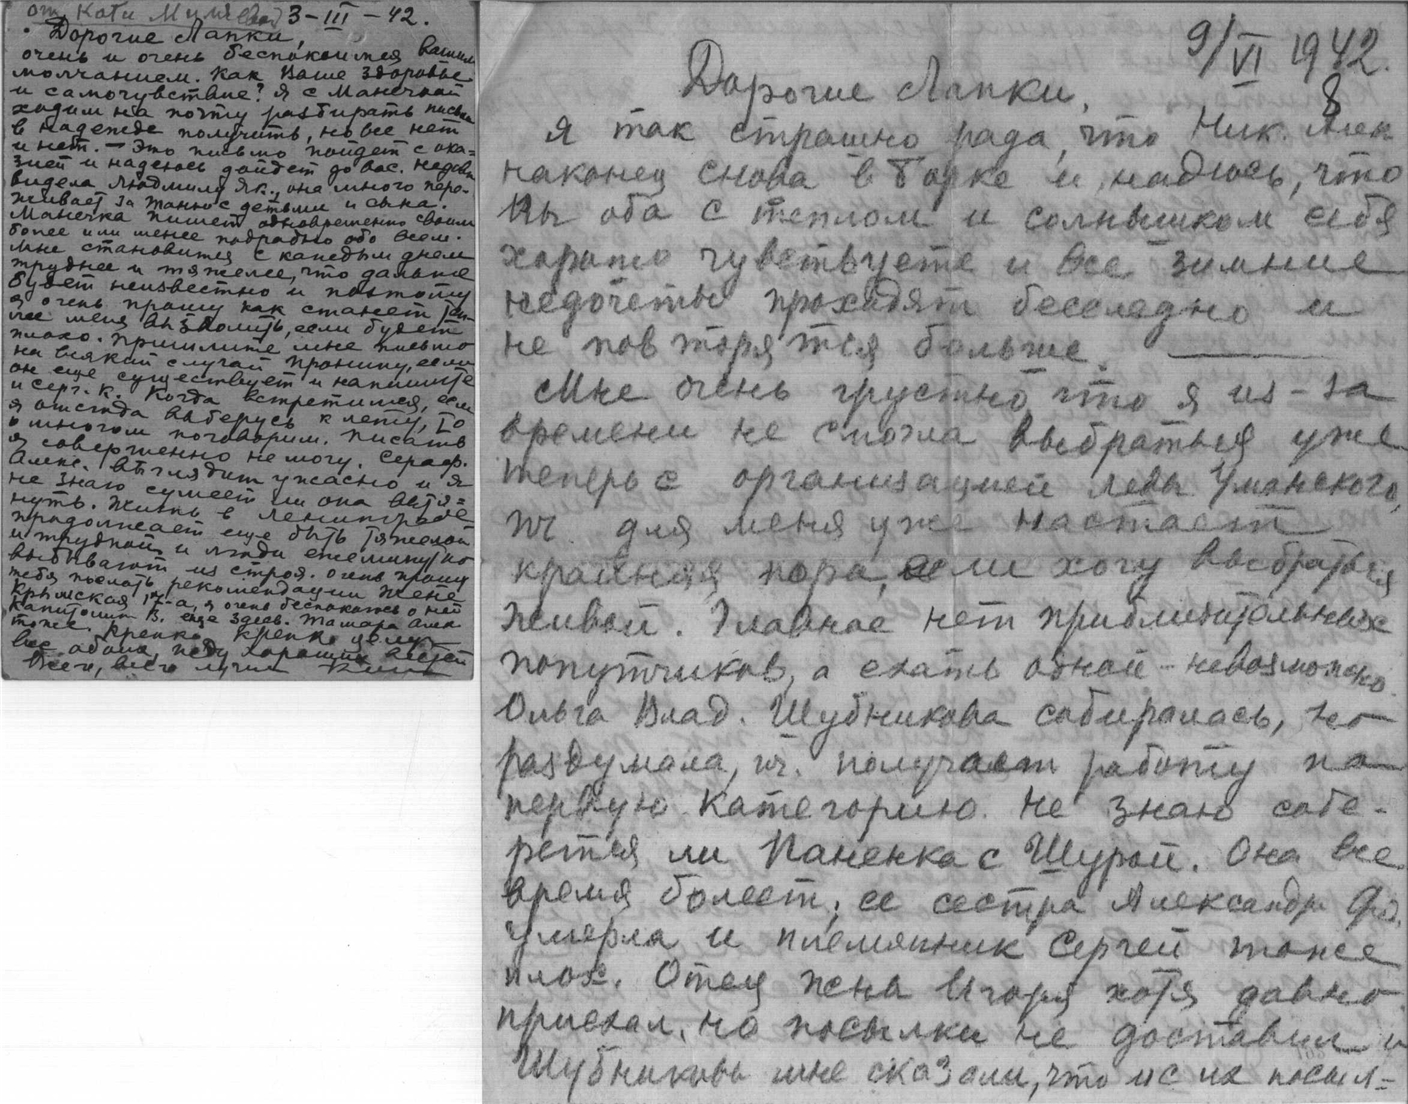 от Кати
3-III-42.
Дорогие Лапки,
очень и очень беспокоимся вашим
молчанием. Как Ваше здоровье
и самочувствие? Я с Манечкой
ходим на почту разбирать письма
в надежде получить, но все нет
и нет. — Это письмо пойдет с ока-
зией и надеюсь дойдет до вас. Недавно
видела Людмилу Як., она много пере-
живает за Таню с детьми и сына.
Манечка пишет одновременно своим
более или менее подробно обо всем.
Мне становится с каждым днем
труднее и тяжелее, что дальше
будет неизвестно и поэтому
я очень прошу как станет
меня вызволить, если будет
плохо. Пришлите мне письмо
на всякий случай Пронину, если
он еще существует и напишите
и Серг. К. Когда встретимся, если
я отсюда выберусь к лету, то
о многом поговорим. Писать
я совершенно не могу. Сераф.
Алекс. выглядит ужасно и я
не знаю сумеет ли она вытя=
нуть. Жизнь в Ленинграде
продолжает еще быть тяжелой
и трудной и люди ежеминутно
выбывают из строя. Очень прошу
тебя послать рекомендации жене
Крымская, я очень беспокоюсь о ней
Капитолин В. еще здесь. Тамара Алек
тоже. Крепко, крепко целую
вас обоих, жду хороших вестей
Всего, всего лучшего
9/VI 1942.
8
Дорогие Лапки,
Я так страшно рада, что Ник. Алек
наконец снова в Борке и надеюсь, что
Вы оба с теплом и солнышком себя
хорошо чувствуете и все зимние
недочеты проходят бесследно и
не повторятся больше. ———
Мне очень грустно, что я из-за
времени не смогла выбраться уже
теперь с организацией Левы Уманского,
тч. для меня уже настает
крайняя пора, если хочу выбраться
живой. Главное нет приблизительных
попутчиков, а ехать одной - невозможно.
Ольга Влад. Шубникова собиралась, но
раздумала, тч. получает работу на
первую категорию. Не знаю собе-
рется ли Паненка с Шурой. Она все
время болеет, ее сестра Александр. Фед.
умерла и племянник Сергей тоже
плох. Отец жены Игоря хотя давно
приехал, но посылки не доставил и
Шубниковы мне сказали, что и с их посыл=